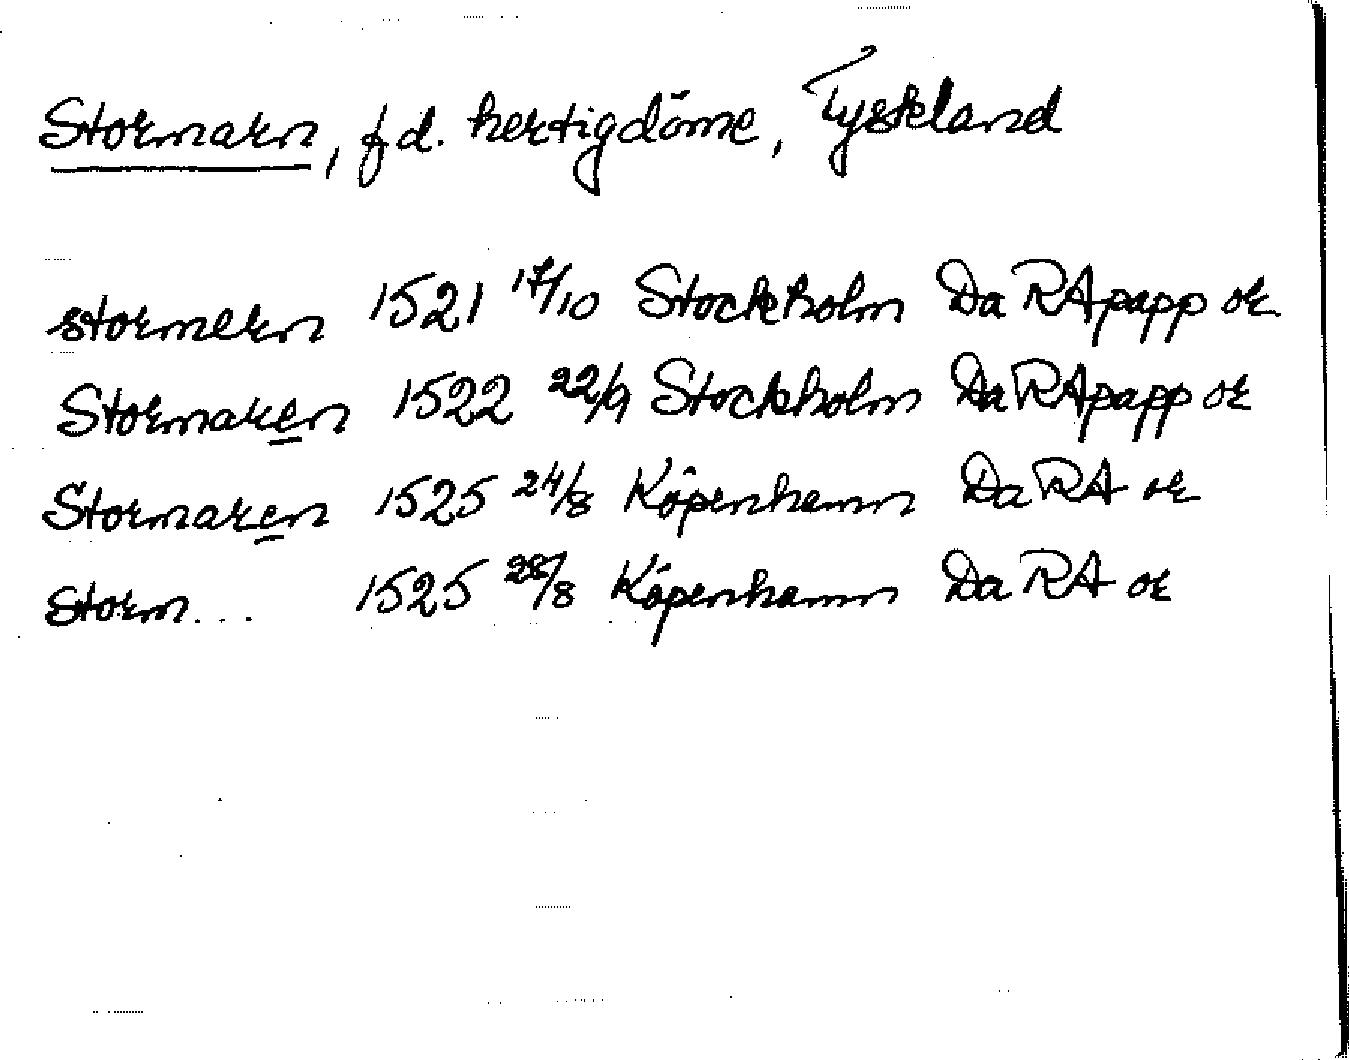 Stormarn, f d. hertigdöme, Tyskland
stormern 1521 17/10 Stockholm Da RA papp or
Stormaren 1522 22/9 Stockholm Da RA papp or
Stormaren 1525 24/8 Köpenhamn Da RA or
Storm... 1525 28/8 Köpenhamn Da RA or